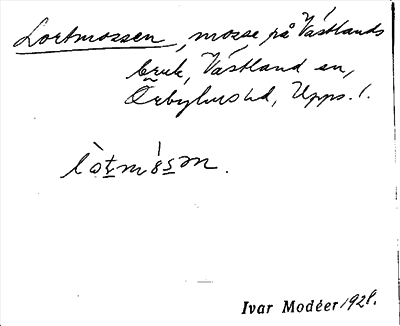 Lortmossen, mosse på Västlands
bruk, Västland sn,
Örbyhus hd, Upps. l.
lò̱rtmȯs̱m.
Ivar Modéer 1928.